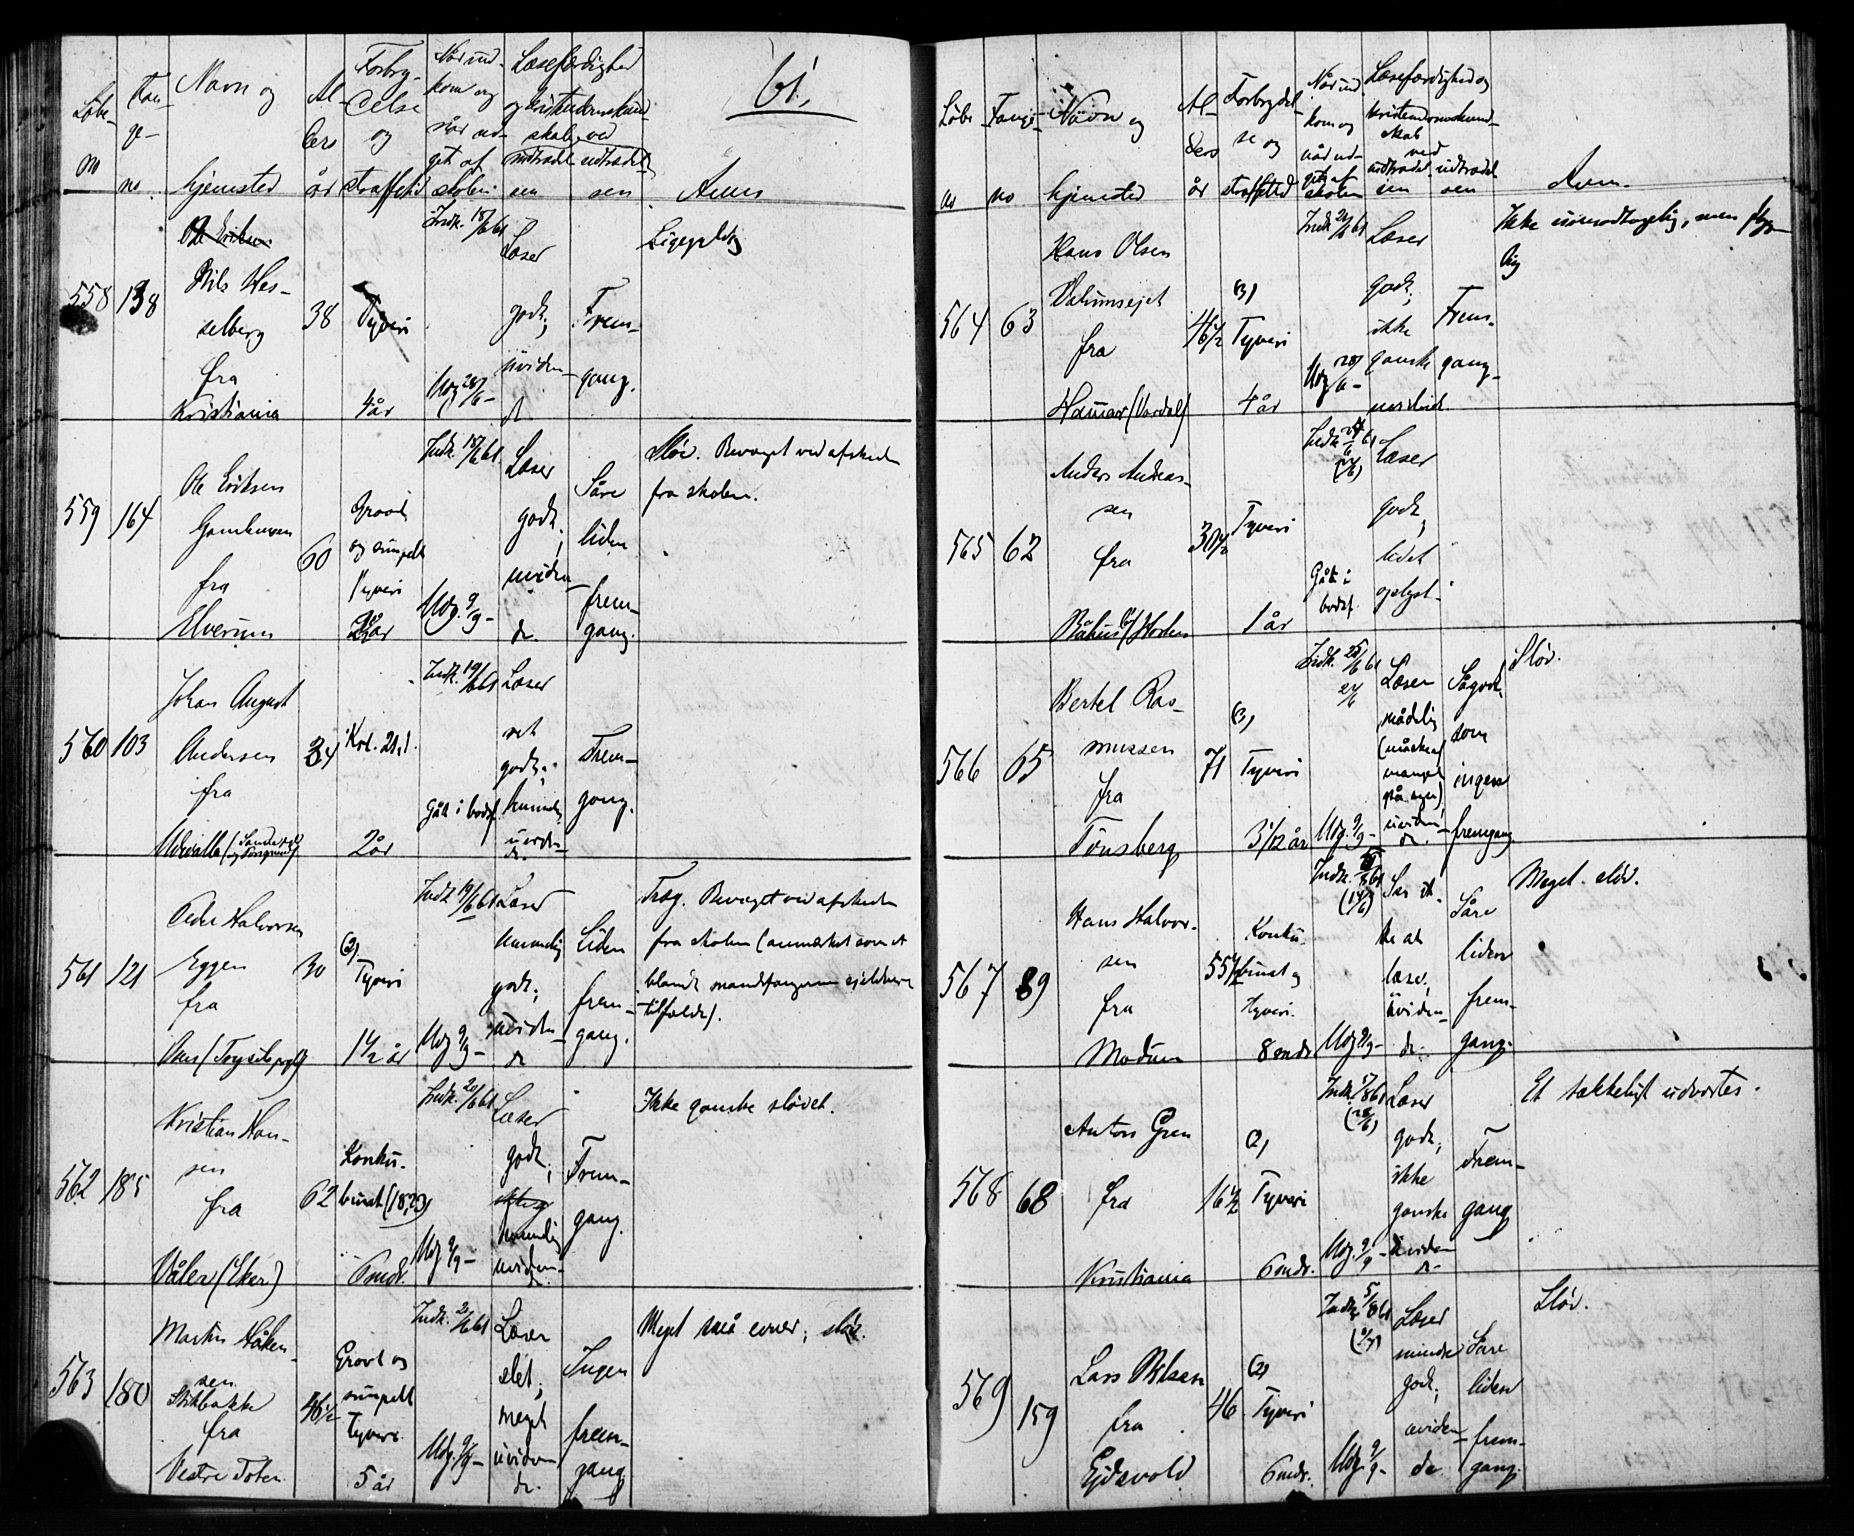 61.
Løbe- no
Fan- ge- no.
Navn og hjemsted
Al- ders år
Forbry- delse og straffetid
Når ind- kom og når ud- gik af skolen
Læsefærdighed og kristendomskund- skab ved indtrædel- sen udtrædel- sen
Anm.
558 138
Ole Eriksen
Nils Hes-
selberg
fra
Kristiania
38
Tyveri
4 år
Indk. 18/6 61
Udg 28/6 -
Læser
godt;
uviden-
d
Frem-
gang.
Ligegyldig
559 164
Ole Eriksen
fra
Elverum
60
Grovt
og simpelt
Tyveri
Indk. 18/6 61
Udg. 9/9 -
Læser
godt;
uviden-
de.
Såre
liden
frem-
gang.
Sløv. Bevæget ved afskeden
fra skolen.
560 103
Johan August
Andersen
fra
Udevalla
34
2 år
Indk. 19/6 61
Gått i bodsf.
Læser
ret
godt;
uviden-
de.
Frem-
gang.
561 121
Peder Halvorsen
Eggen
fra
30
(2)
Tyveri
1 1/2 år
Indk 19/6 61
Udg 9/9 -
Læser
temmelig
godt;
uviden-
de
Liden
frem-
gang.
Træg. Bevæget ved afskeden
fra skolen (anmærket som et
blandt mandfangerne sjeldnere
tilfælde).
562 185
Kristian Han-
sen
fra
Våler (Eker)
62
Konku-
binat (18,23)
6 mdr.
Indk. 20/6 61
Udg 9/9 -
Læser
godt;
temmelig
uviden-
Frem-
gang.
Ikke ganske sløvet.
563 180
Martin Håken-
sen
Stikbakke
fra
Vestre Toten
46 1/2
Grovt og
simpelt
Tyveri
5 år
Indk. 20/6 61
Udg. 9/9 -
Læser
slet;
meget
uviden-
de.
Ingen
frem-
gang.
Meget små evner; sløv.
Løbe- no
Fange- no
Navn og hjemsted
Al- ders år
Forbrydel- se og straffetid
Når ind- kom og når ud- gik af skolen
Læsefærdighed og kristendomskund- skab ved indtrædel- sen udtrædel- sen
Anm.
564 63
Hans Olsen
fra
Hamar (Vardal)
46 1/2
(3)
Tyveri
4 år
Indk 21/6 61
Udg 28/6 -
Læser
godt;
ikke
ganske
uvidende.
Frem-
gang.
Ikke uimodtagelig, men flyg-
tig
565 62
Anders Andreas-
sen
fra
30 1/2
Tyveri
1 år
Gått i
bodsf.
Læser
godt;
lidet
oplyst.
566 65
Bertel Ras-
mussen
fra
Tønsberg
71
(3)
Tyveri
3 1/12 år
Indk. 25/6 61
24/6
Udg. 9/9 -
Læser
mådelig
(måske af
mangel
på øyne)
uviden-
de.
Sågodt
som
ingen
fremgang
Sløv.
567 89
Hans Halvor-
sen
fra
Modum
55 1/2
Konku-
binat og
tyveri.
8 mdr
Udg 9/9 -
læse;
uviden-
de.
Såre
liden
frem-
gang.
Meget sløv.
568 68
Anton Gren
fra
Kristiania
16 1/2
(2)
Tyveri
6 mdr.
Indk. 5/8 61
(28/6)
Udg. 9/9 -
Læser
godt;
ikke
ganske
uviden-
de.
Frem-
gang
Et tækkeligt udvortes.
569 159
Lars Nilsen
fra
Ejdsvold
46
(2)
Tyveri
6 mdr.
Indk. 5/8 61
Udg. 9/9 -
Læser
mindre
godt;
uviden-
de
Såre
liden
frem-
gang.
Sløv.